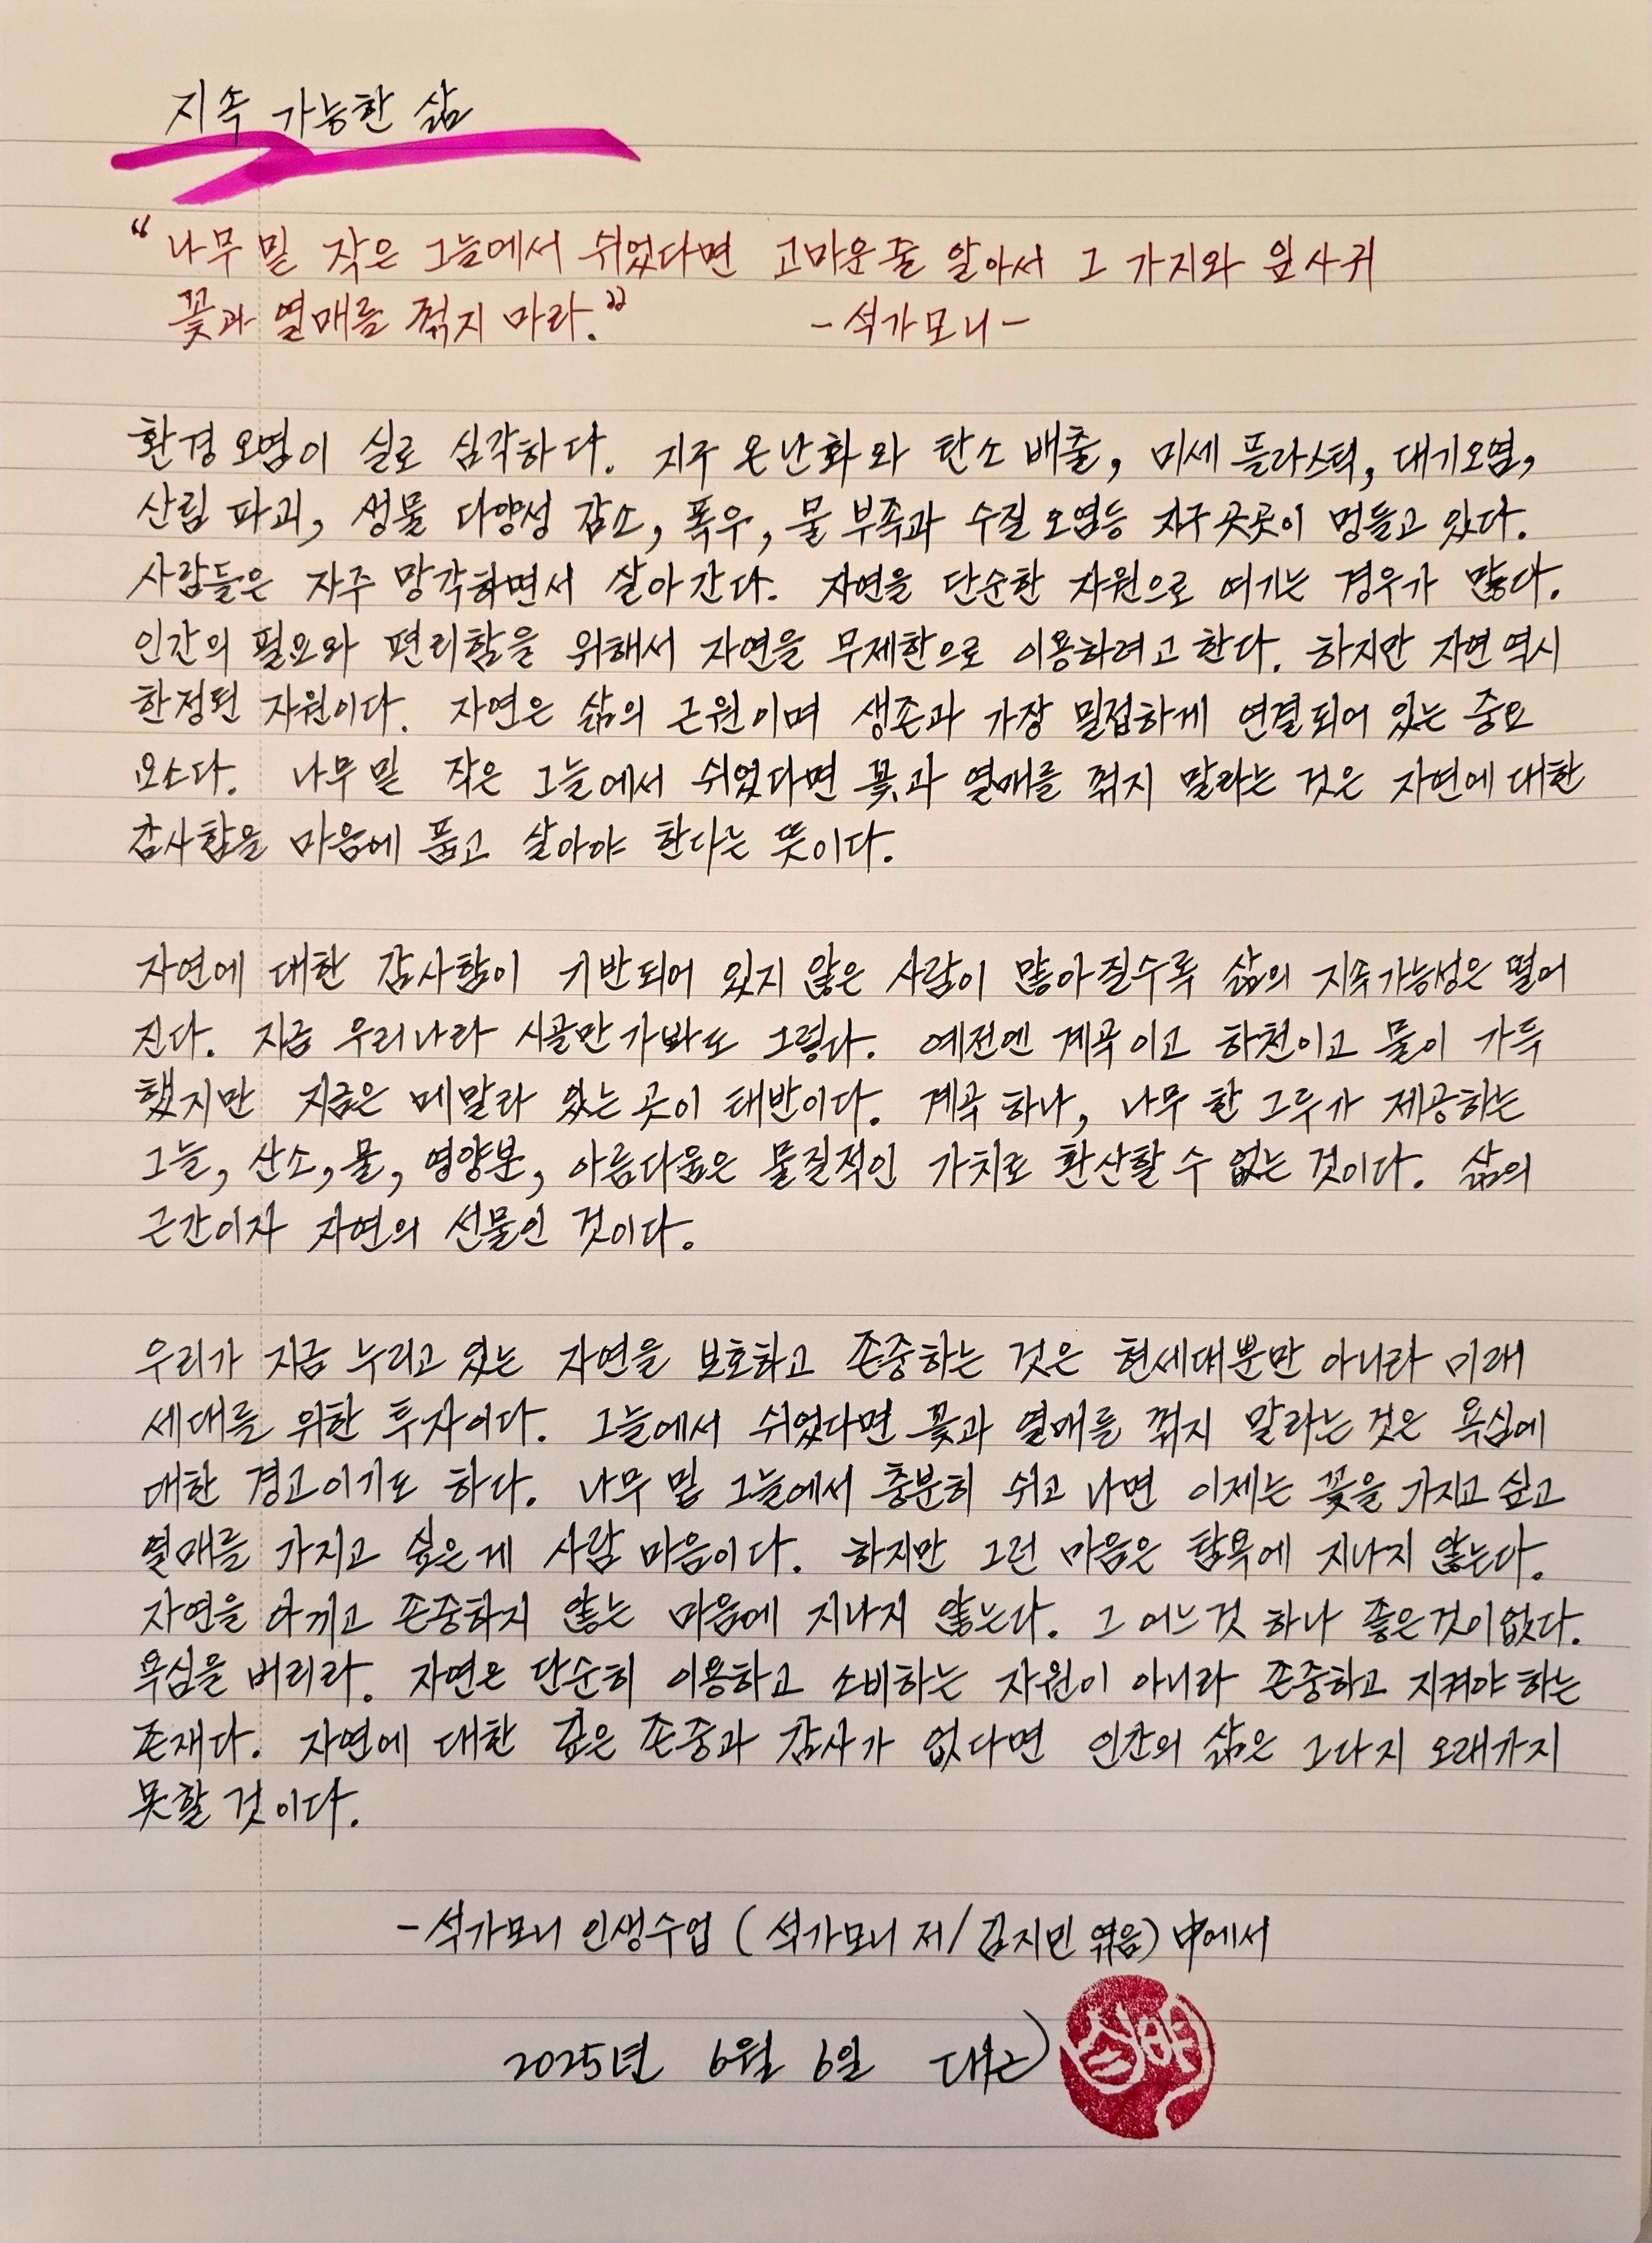 지속 가능한 삶
“나무 밑 작은 그늘에서 쉬었다면 고마운 줄 알아서 그 가지와 잎사귀
꽃과 열매를 꺾지 마라.”
-석가모니-
환경 오염이 실로 심각하다. 지구 온난화와 탄소 배출, 미세 플라스틱, 대기오염,
산림 파괴, 생물 다양성 감소, 폭우, 물 부족과 수질 오염등 지구 곳곳이 멍들고 있다.
사람들은 자주 망각하면서 살아간다. 자연을 단순한 자원으로 여기는 경우가 많다.
인간의 필요와 편리함을 위해서 자연을 무제한으로 이용하려고 한다. 하지만 자연 역시
한정된 자원이다. 자연은 삶의 근원이며 생존과 가장 밀접하게 연결되어 있는 중요
요소다. 나무 밑 작은 그늘에서 쉬었다면 꽃과 열매를 꺾지 말라는 것은 자연에 대한
감사함을 마음에 품고 살아야 한다는 뜻이다.
자연에 대한 감사함이 기반되어 있지 않은 사람이 많아질수록 삶의 지속가능성은 떨어
진다. 지금 우리나라 시골만 가봐도 그렇다. 예전엔 계곡이고 하천이고 물이 가득
했지만 지금은 메말라 있는 곳이 태반이다. 계곡 하나, 나무 한 그루가 제공하는
그늘, 산소, 물, 영양분, 아름다움은 물질적인 가치로 환산할 수 없는 것이다. 삶의
근간이자 자연의 선물인 것이다.
우리가 지금 누리고 있는 자연을 보호하고 존중하는 것은 현세대뿐만 아니라 미래
세대를 위한 투자이다. 그늘에서 쉬었다면 꽃과 열매를 꺾지 말라는 것은 욕심에
대한 경고이기도 하다. 나무 밑 그늘에서 충분히 쉬고 나면 이제는 꽃을 가지고 싶고
열매를 가지고 싶은 게 사람 마음이다. 하지만 그런 마음은 탐욕에 지나지 않는다.
자연을 아끼고 존중하지 않는 마음에 지나지 않는다. 그 어느것 하나 좋은것이없다.
욕심을 버리라. 자연은 단순히 이용하고 소비하는 자원이 아니라 존중하고 지켜야 하는
존재다. 자연에 대한 깊은 존중과 감사가 없다면 인간의 삶은 그다지 오래가지
못할 것이다.
-석가모니 인생수업 (석가모니 저/김지민 엮음) 中에서
2025년 6월 6일